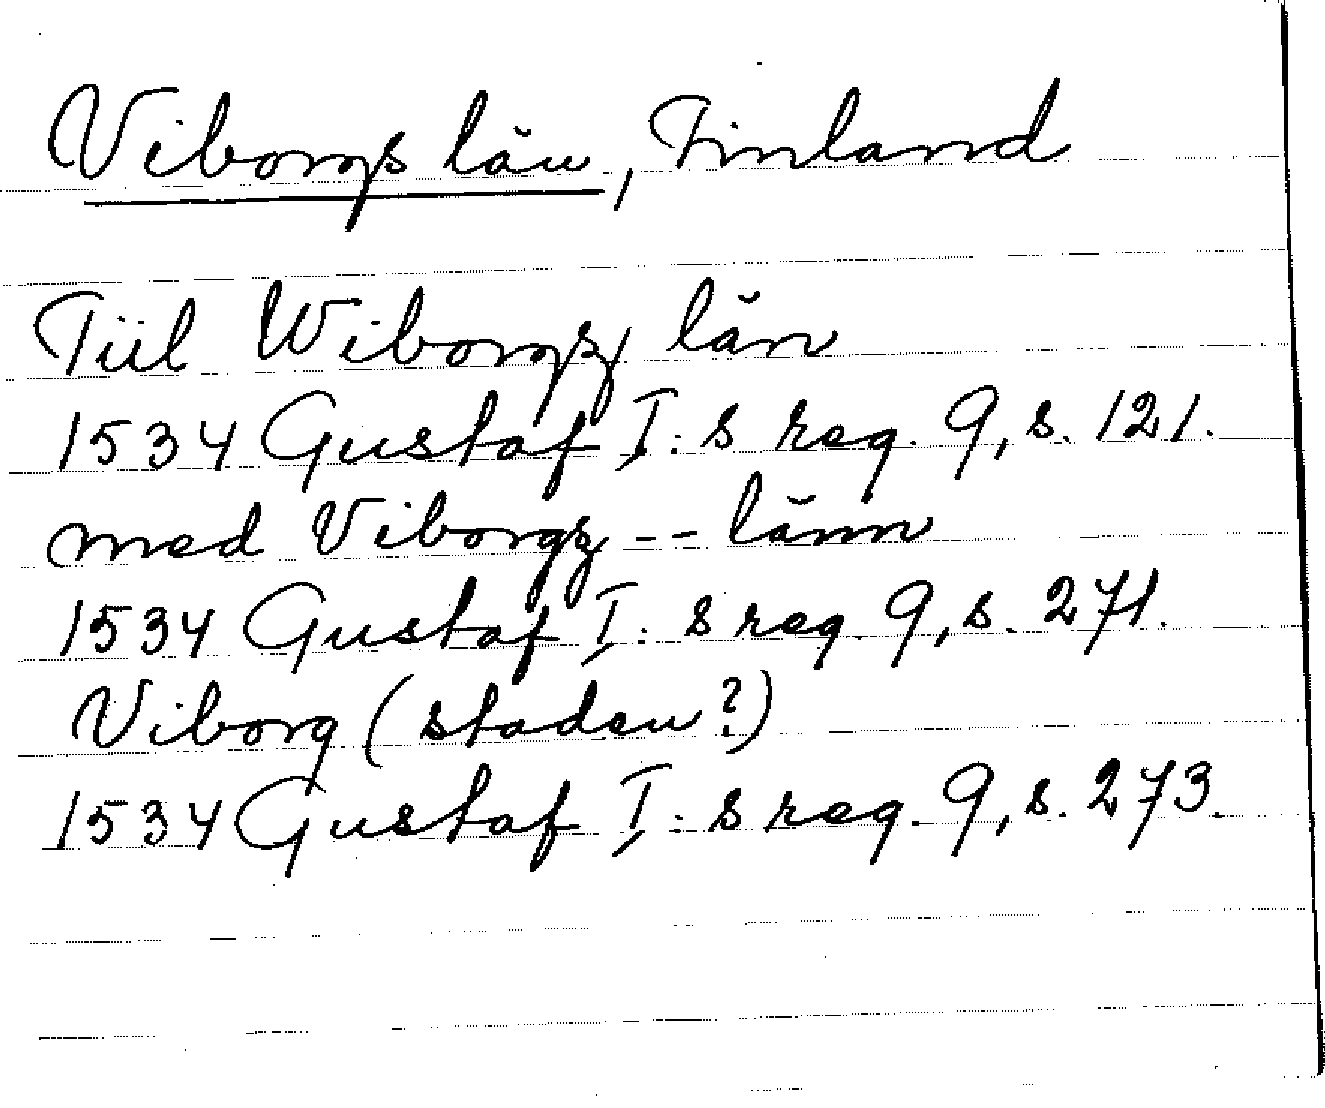 Viborgs län, Finland
Tiil Wiborgz län
1534 Gustaf I:s reg. 9, s. 121.
med Viborgz -- länn
1534 Gustaf I:s reg. 9, s. 271.
Viborg (staden?)
1534 Gustaf I:s reg. 9, s. 273.